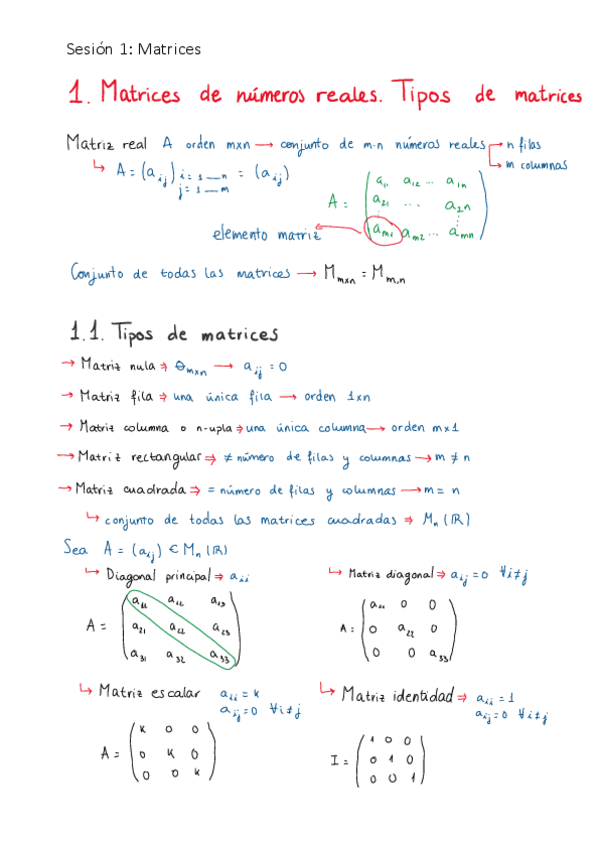 Sesión 1: Matrices
1. Matrices de números reales. Tipos de matrices
Matriz real A orden m×n → conjunto de m·n números reales → n filas
→ m columnas
↳ A = (a_ij) i = 1 — n = (a_ij)
j = 1 — m
A = ( a_11 a_12 ... a_1n
a_21 ... a_2n
a_m1 a_m2 ... a_mn )
elemento matriz
Conjunto de todas las matrices → M_m×n = M_m,n
1.1. Tipos de matrices
→ Matriz nula ⇒ Θ_m×n → a_ij = 0
→ Matriz fila ⇒ una única fila → orden 1×n
→ Matriz columna o n-upla ⇒ una única columna → orden m×1
→ Matriz rectangular ⇒ ≠ número de filas y columnas → m ≠ n
→ Matriz cuadrada ⇒ = número de filas y columnas → m = n
↳ conjunto de todas las matrices cuadradas ⇒ M_n (ℝ)
Sea A = (a_ij) ∈ M_n (ℝ)
↳ Diagonal principal ⇒ a_ii
A = ( a_11 a_12 a_13
a_21 a_22 a_23
a_31 a_32 a_33 )
↳ Matriz diagonal ⇒ a_ij = 0 ∀i≠j
A = ( a_11 0 0
0 a_22 0
0 0 a_33 )
↳ Matriz escalar a_ii = k
a_ij = 0 ∀i≠j
A = ( k 0 0
0 k 0
0 0 k )
↳ Matriz identidad ⇒ a_ii = 1
a_ij = 0 ∀i≠j
I = ( 1 0 0
0 1 0
0 0 1 )